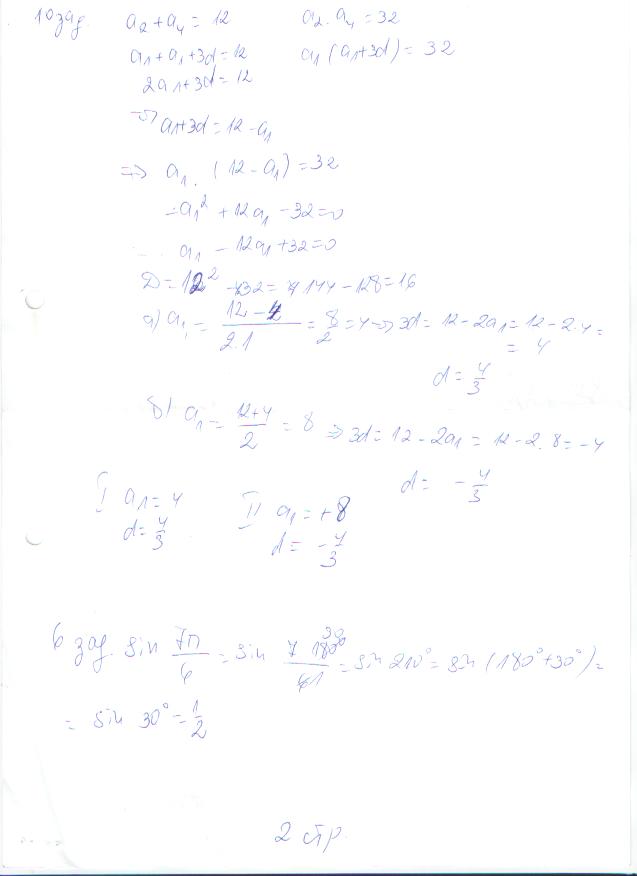 10 зад. a₂ + a₄ = 12 a₂ · a₄ = 32
a₁ + a₁ + 3d = 12 a₁ (a₁ + 3d) = 32
2a₁ + 3d = 12
=> a₁ + 3d = 12 - a₁
=> a₁ . (12 - a₁) = 32
-a₁² + 12a₁ - 32 = 0
a₁ - 12a₁ + 32 = 0
D = 12² - 4·32 = 144 - 128 = 16
а) a₁ = (12 - 4)/(2.1) = 8/2 = 4 => 3d = 12 - 2a₁ = 12 - 2.4 =
= 4
d = 4/3
б) a₁ = (12 + 4)/2 = 8 => 3d = 12 - 2a₁ = 12 - 2.8 = -4
d = -4/3
I a₁ = 4 II a₁ = +8
d = 4/3 d = -4/3
6 зад. sin 7π/6 = sin 7 180°/6 = sin 210° = sin (180° + 30°) =
= sin 30° = 1/2
2 стр.